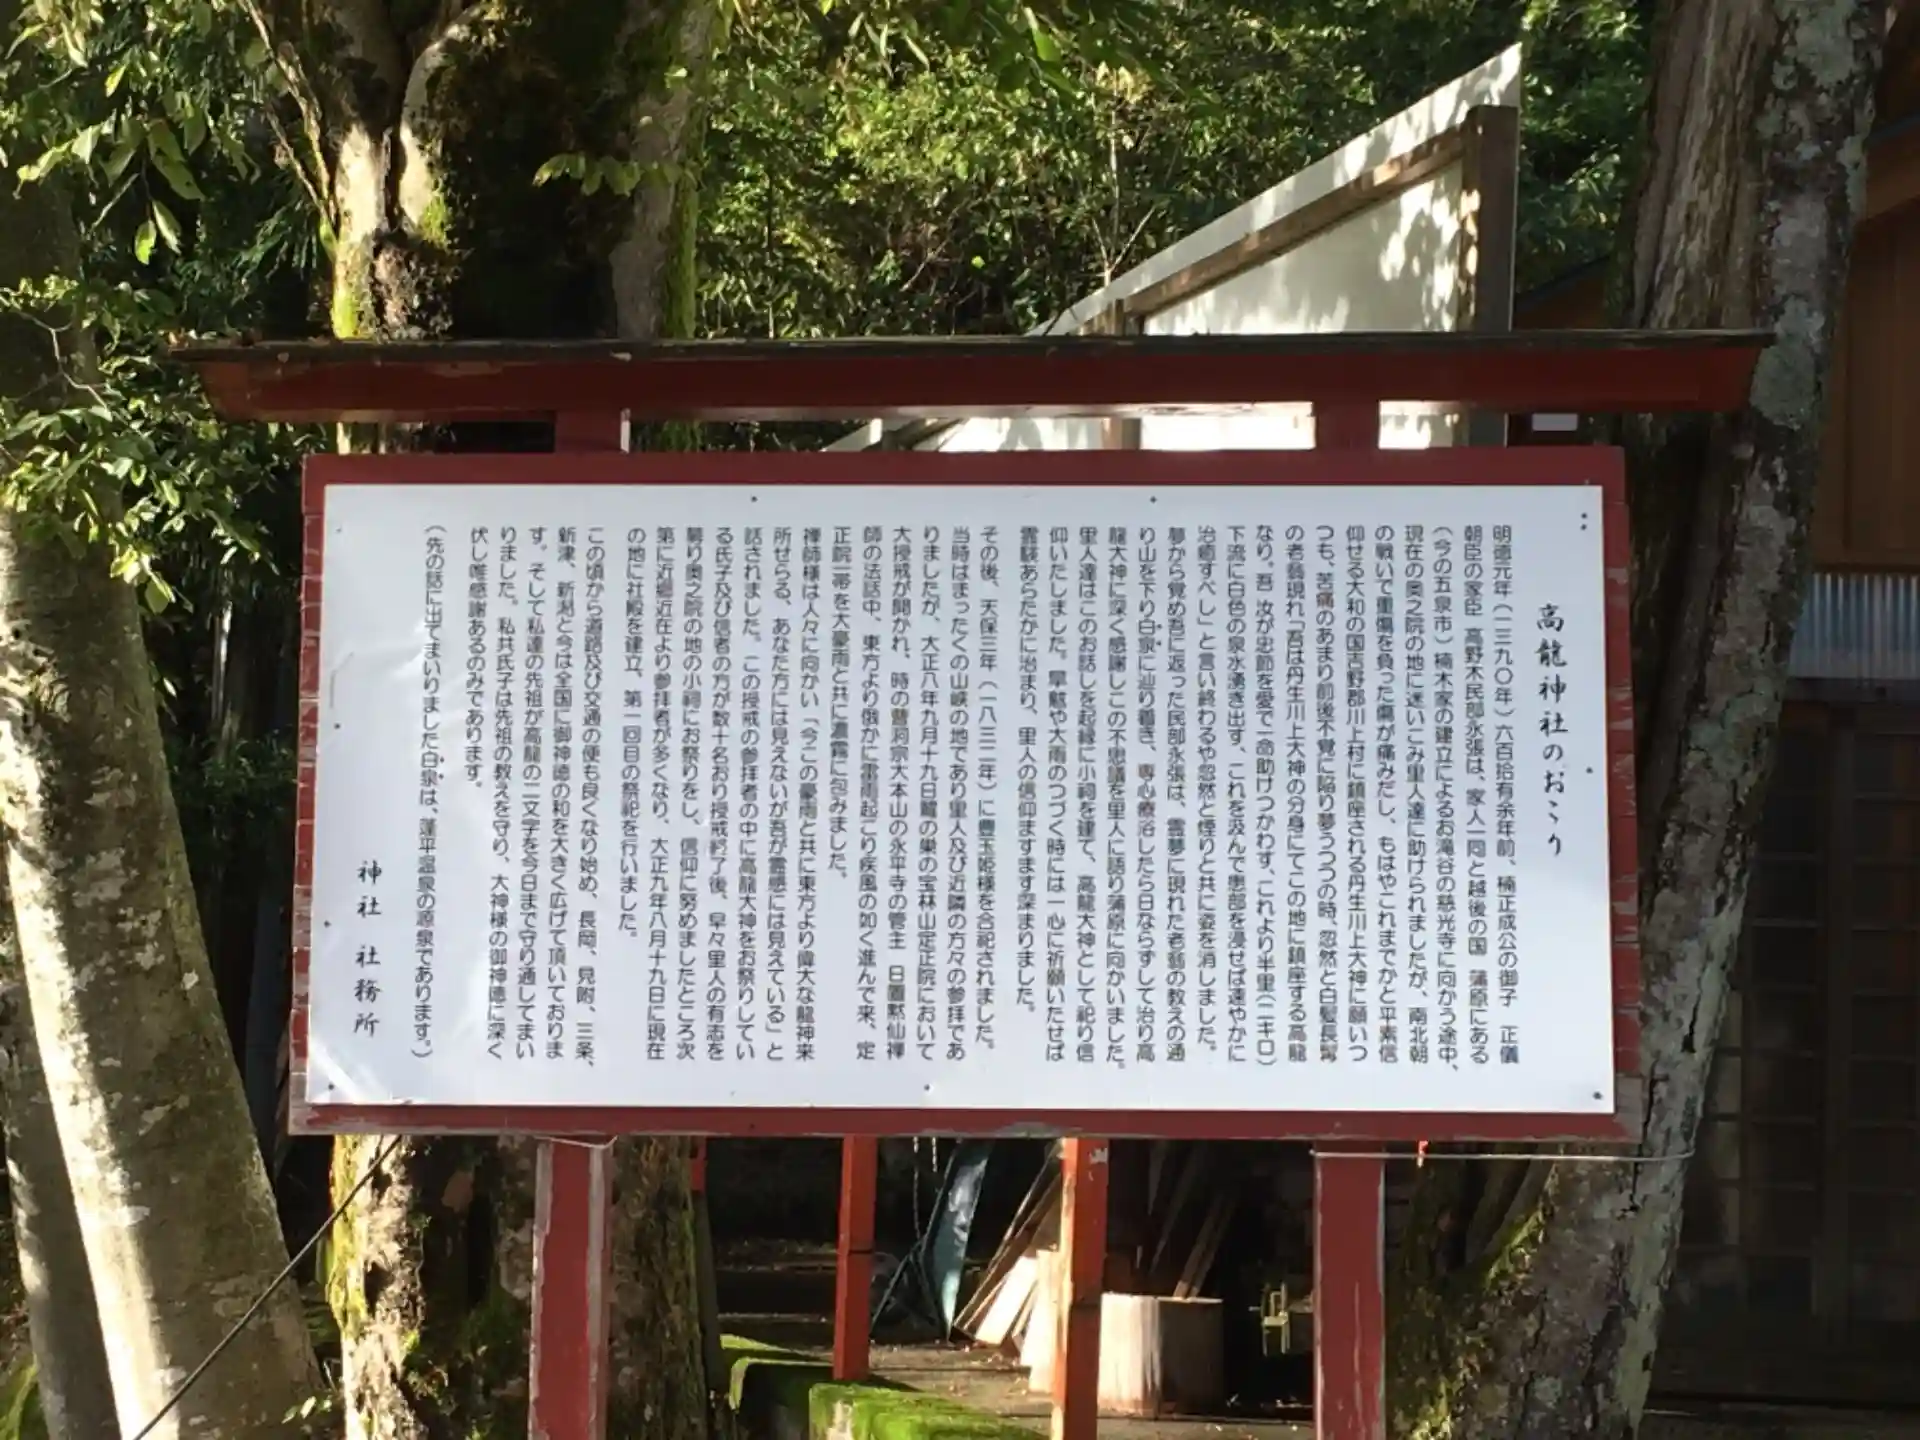 高龍神社のおこり
明徳元年(一三九〇年)六百拾有余年前、楠正成公の御子 正儀
朝臣の家臣 高野木民部永張は、家人一同と越後の国 蒲原にある
(今の五泉市)楠木家の建立によるお滝谷の慈光寺に向かう途中、
現在の奥之院の地に迷いこみ里人達に助けられましたが、南北朝
の戦いで重傷を負った傷が痛みだし、もはやこれまでかと平素信
仰せる大和の国吉野郡川上村に鎮座される丹生川上大神に願いつ
つも、苦痛のあまり前後不覚に陥り夢うつつの時、忽然と白髪長髯
の老翁現れ「吾は丹生川上大神の分身にてこの地に鎮座する高龍
なり。吾 汝が忠節を愛で一命助けつかわす、これより半里(二キロ)
下流に白色の泉水湧き出す、これを汲んで患部を浸せば速やかに
治癒すべし」と言い終わるや忽然と煙りと共に姿を消しました。
夢から覚め吾に返った民部永張は、霊夢に現れた老翁の教えの通
り山を下り白泉に辿り着き、専心療浴したら日ならずして治り高
龍大神に深く感謝しこの不思議を里人に語り蒲原に向かいました。
里人達はこのお話しを起縁に小祠を建て、高龍大神として祀り信
仰いたしました。旱魃や大雨のつづく時には一心に祈願いたせば
霊験あらたかに治まり、里人の信仰ますます深まりました。
その後、天保三年(一八三二年)に豊玉姫様を合祀されました。
当時はまったくの山峡の地であり里人及び近隣の方々の参拝であ
りましたが、大正八年九月十九日龍の巣の宝林山定正院において
大授戒が開かれ、時の曹洞宗大本山の永平寺の管主 日置黙仙禅
師の法話中、東方より俄かに雷雨起こり疾風の如く進んで来、定
正院一帯を大豪雨と共に濃霧に包みました。
禅師様は人々に向かい「今この豪雨と共に東方より偉大な龍神来
所せらる、あなた方には見えないが吾が霊感には見えている」と
話されました。この授戒の参拝者の中に高龍大神をお祭りしてい
る氏子及び信者の方が数十名おり授戒終了後、早々里人の有志を
募り奥之院の地の小祠にお祭りをし、信仰に努めましたところ次
第に近郷近在より参拝者が多くなり、大正九年八月十九日に現在
の地に社殿を建立、第一回目の祭祀を行いました。
この頃から道路及び交通の便も良くなり始め、長岡、見附、三条、
新津、新潟と今は全国に御神徳の和を大きく広げて頂いておりま
す。そして私達の先祖が高龍の二文字を今日まで守り通してまい
りました。私共氏子は先祖の教えを守り、大神様の御神徳に深く
伏し唯感謝あるのみであります。
(先の話に出てまいりました白泉は、蓬平温泉の源泉であります。)
神社 社務所